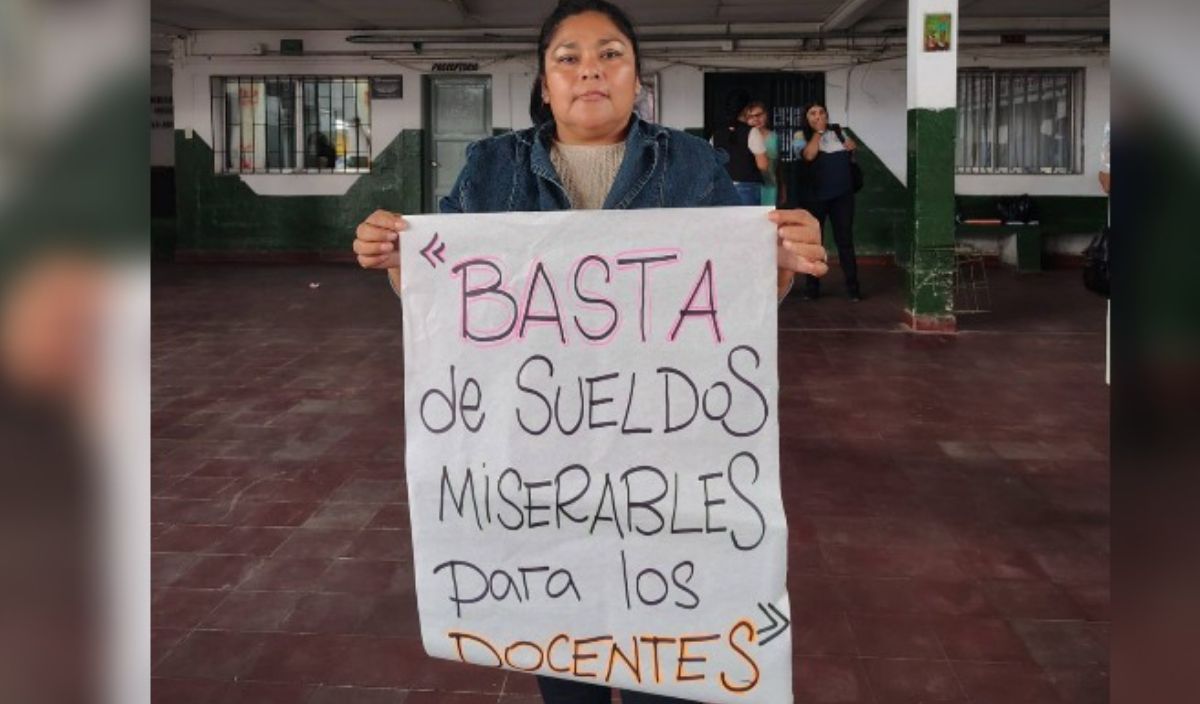 PRECEPTORIA
«BASTA
de SUELDOS
MISERABLES
para los
DOCENTES»